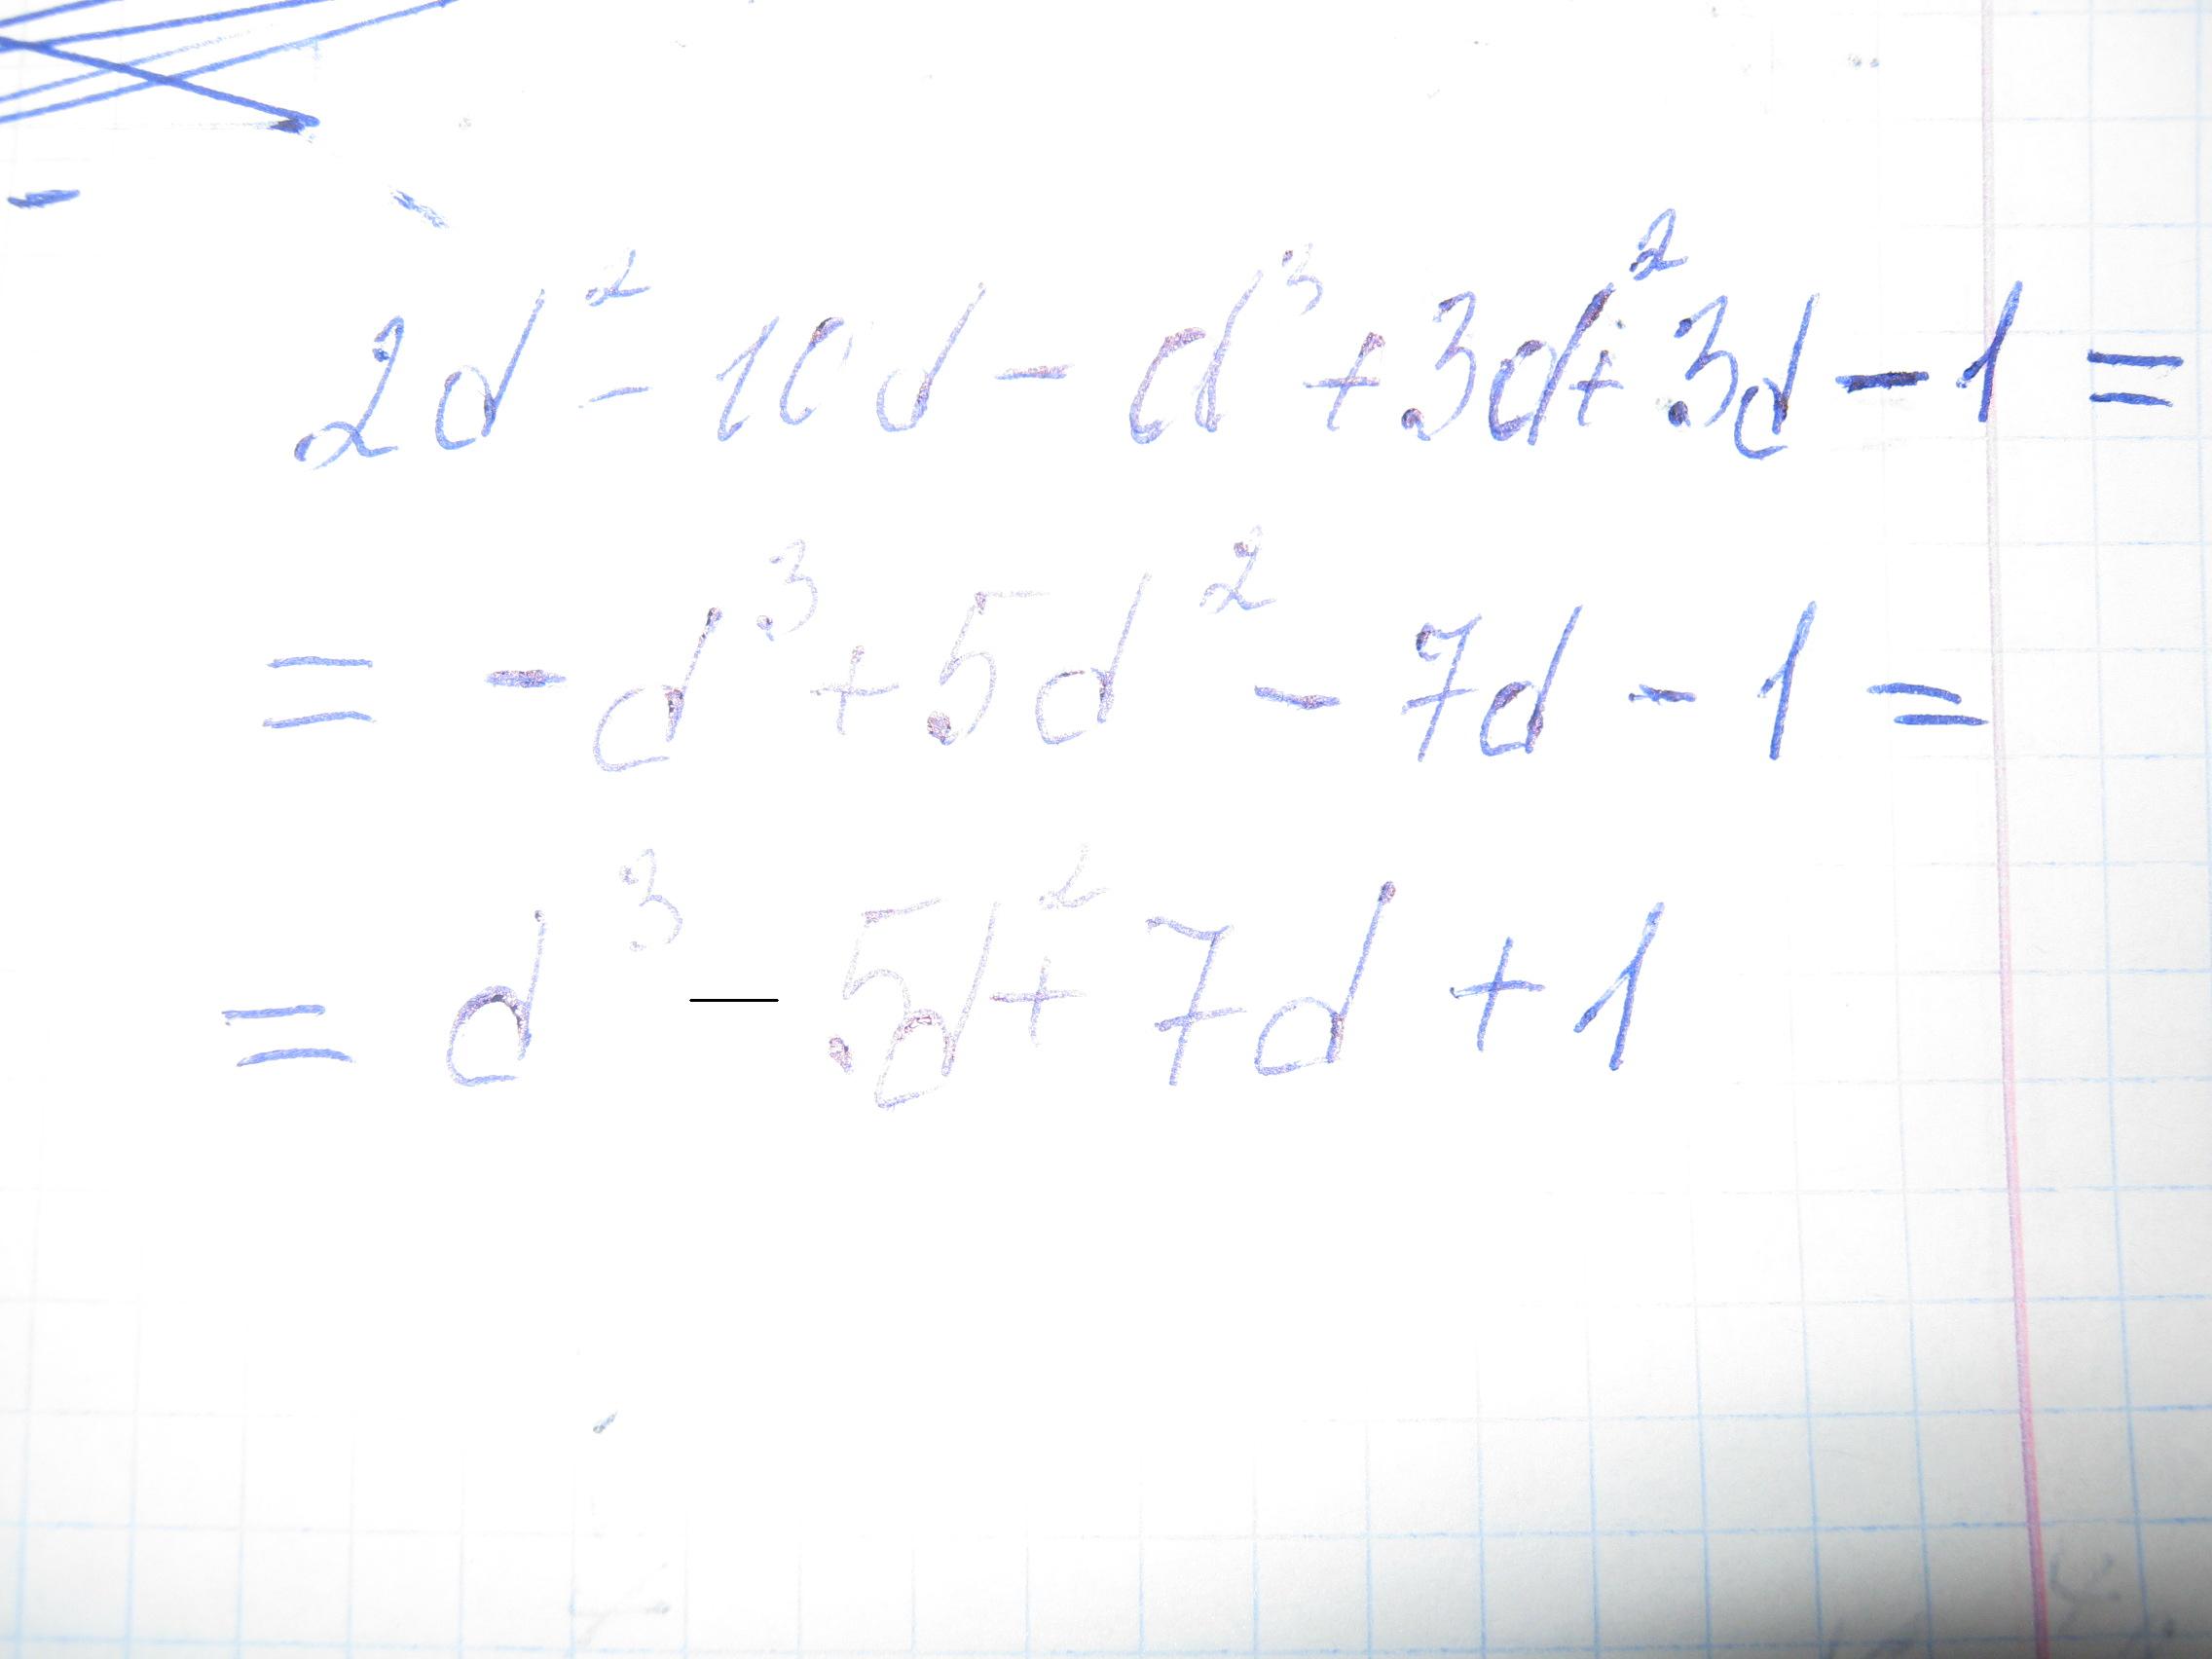 2d² - 10d - d³ + 3d² + 3d - 1 =
= - d³ + 5d² - 7d - 1 =
= d³ — 5d² + 7d + 1